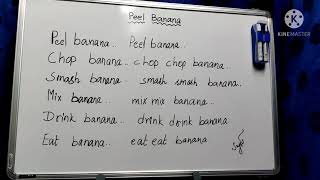 Peel Banana
Peel banana.. Peel banana..
Chop banana.. chop chop banana..
Smash banana.. smash smash banana..
Mix banana.. mix mix banana..
Drink banana.. drink drink banana
Eat banana.. eat eat banana
KINEMASTER